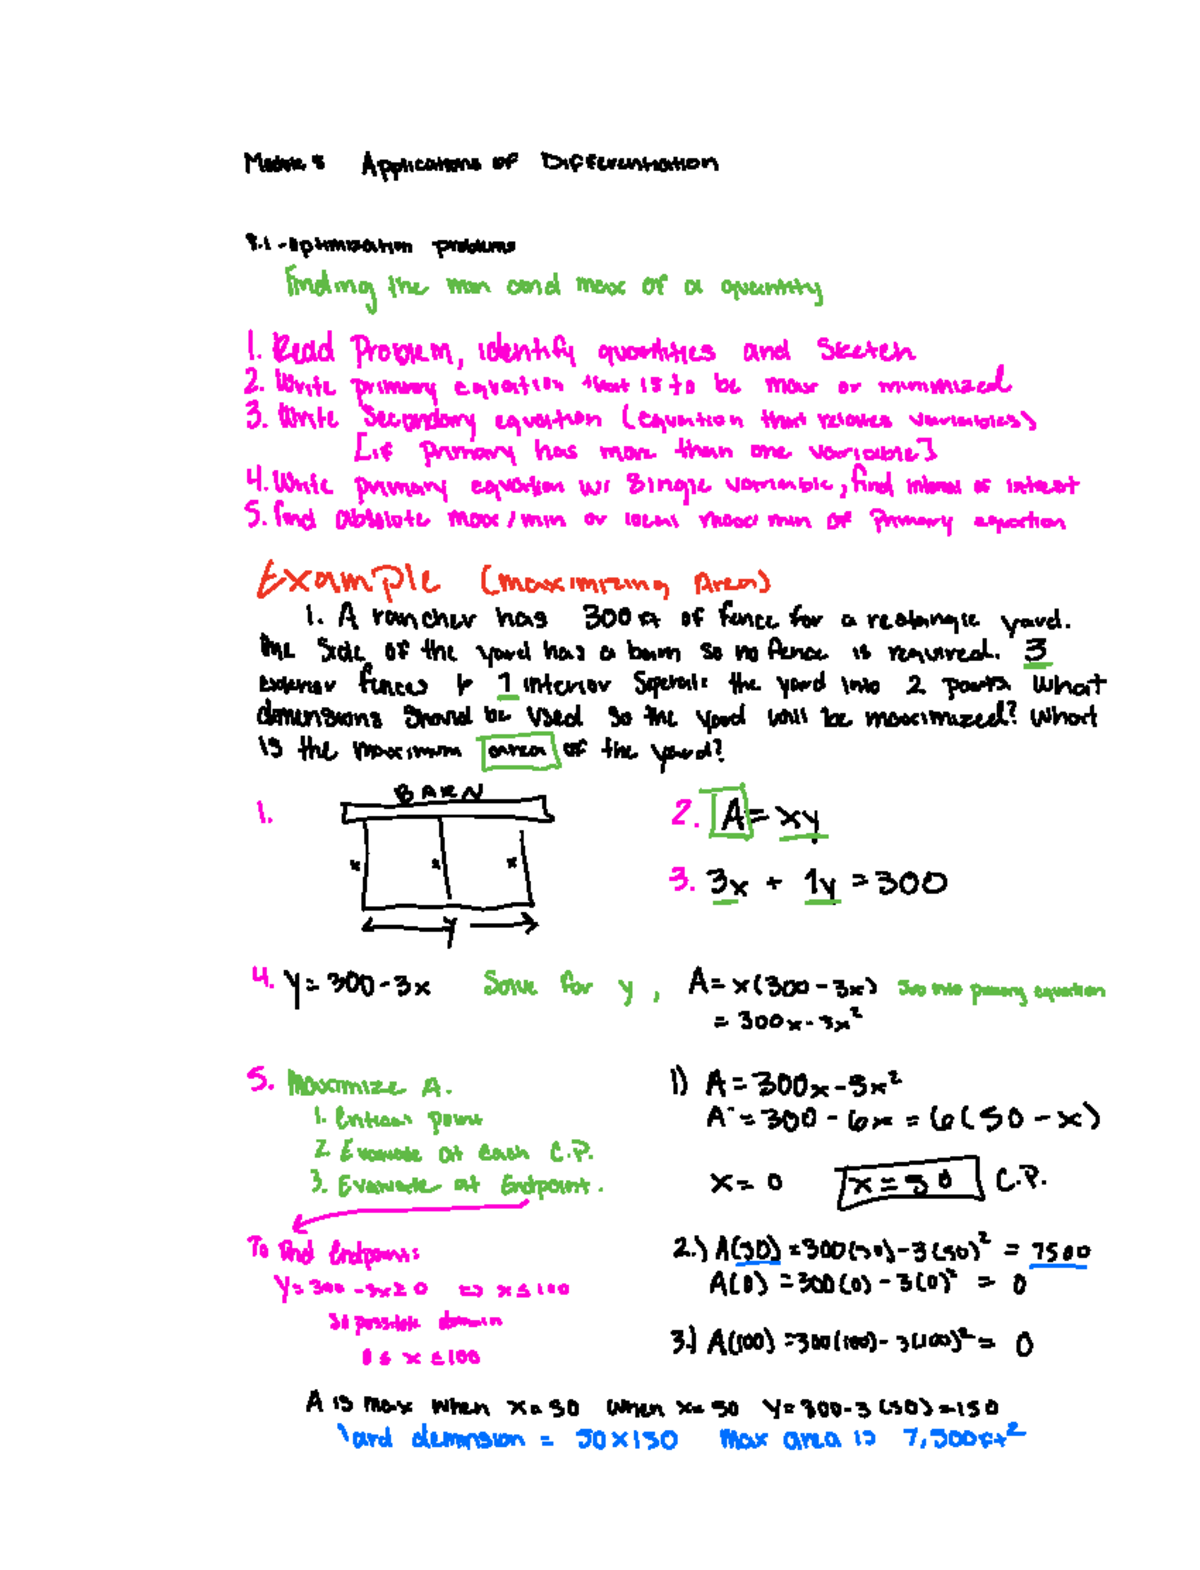 Module 8 Applications of Differentiation
8.1 - optimization problems
Finding the min and max of a quantity
1. Read Problem, identify quantities and Sketch
2. Write primary equation that is to be max or minimized
3. Write Secondary equation (equation that relates variables)
[if primary has more than one variable]
4. Write primary equation w/ single variable, find interval of interest
5. find absolute max/min or local max/min of Primary equation
Example (maximizing Area)
1. A rancher has 300ft of fence for a rectangle yard.
One Side of the yard has a barn so no fence is required. 3
exterior fences & 1 interior Seperate the yard into 2 parts. What
dimensions Should be used so the yard will be maximized? What
is the maximum area of the yard?
1.
BARN
x x x
y
2. A = xy
3. 3x + 1y = 300
4. y = 300 - 3x Solve for y, A = x(300 - 3x) Sub into primary equation
= 300x - 3x²
5. Maximize A.
1. Critical point
2. Evaluate at each C.P.
3. Evaluate at Endpoint.
1) A = 300x - 3x²
A' = 300 - 6x = 6(50 - x)
x = 0 x = 50 C.P.
To find Endpoints
y = 300 - 3x ≥ 0 => x ≤ 100
So possible domain
0 ≤ x ≤ 100
2.) A(50) = 300(50) - 3(50)² = 7500
A(0) = 300(0) - 3(0)² = 0
3.) A(100) = 300(100) - 3(100)² = 0
A is max when x = 50 when x = 50 y = 300 - 3(50) = 150
Yard demension = 50 x 150 Max area is 7,500ft²